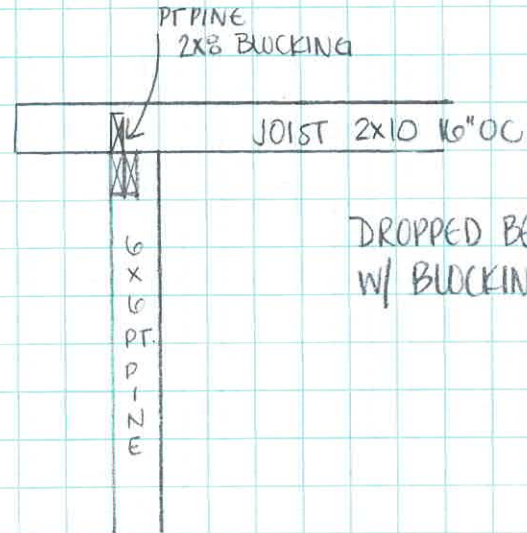 PT PINE
2X8 BLOCKING
JOIST 2X10 16" OC
DROPPED
W/
6
X
6
PT.
P
I
N
E